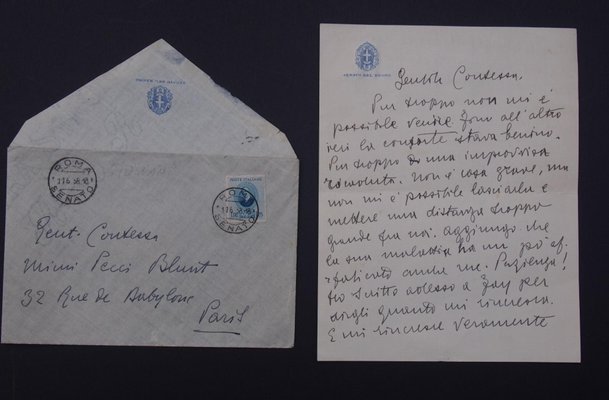 ROMA
SENATO
11 6 38.18
POSTE ITALIANE
ROMA
SENATO
11 6 38.18
Gent. Contessa
Mimi Pecci Blunt
32 Rue de Babylone
Paris
SENATO DEL REGNO
Gentile Contessa,
Pur troppo non mi è
possibile venire. Fino all'altro
ieri la stava benino.
Pur troppo una improvvisa
ricaduta. Non è cosa grave, ma
non mi è possibile lasciarla e
mettere una distanza troppo
grande fra noi. Aggiungo che
la sua malattia ha un pò af-
faticato anche me. Pazienza!
Ho scritto adesso a per
dirgli quanto mi rincresca.
E mi rincresce veramente